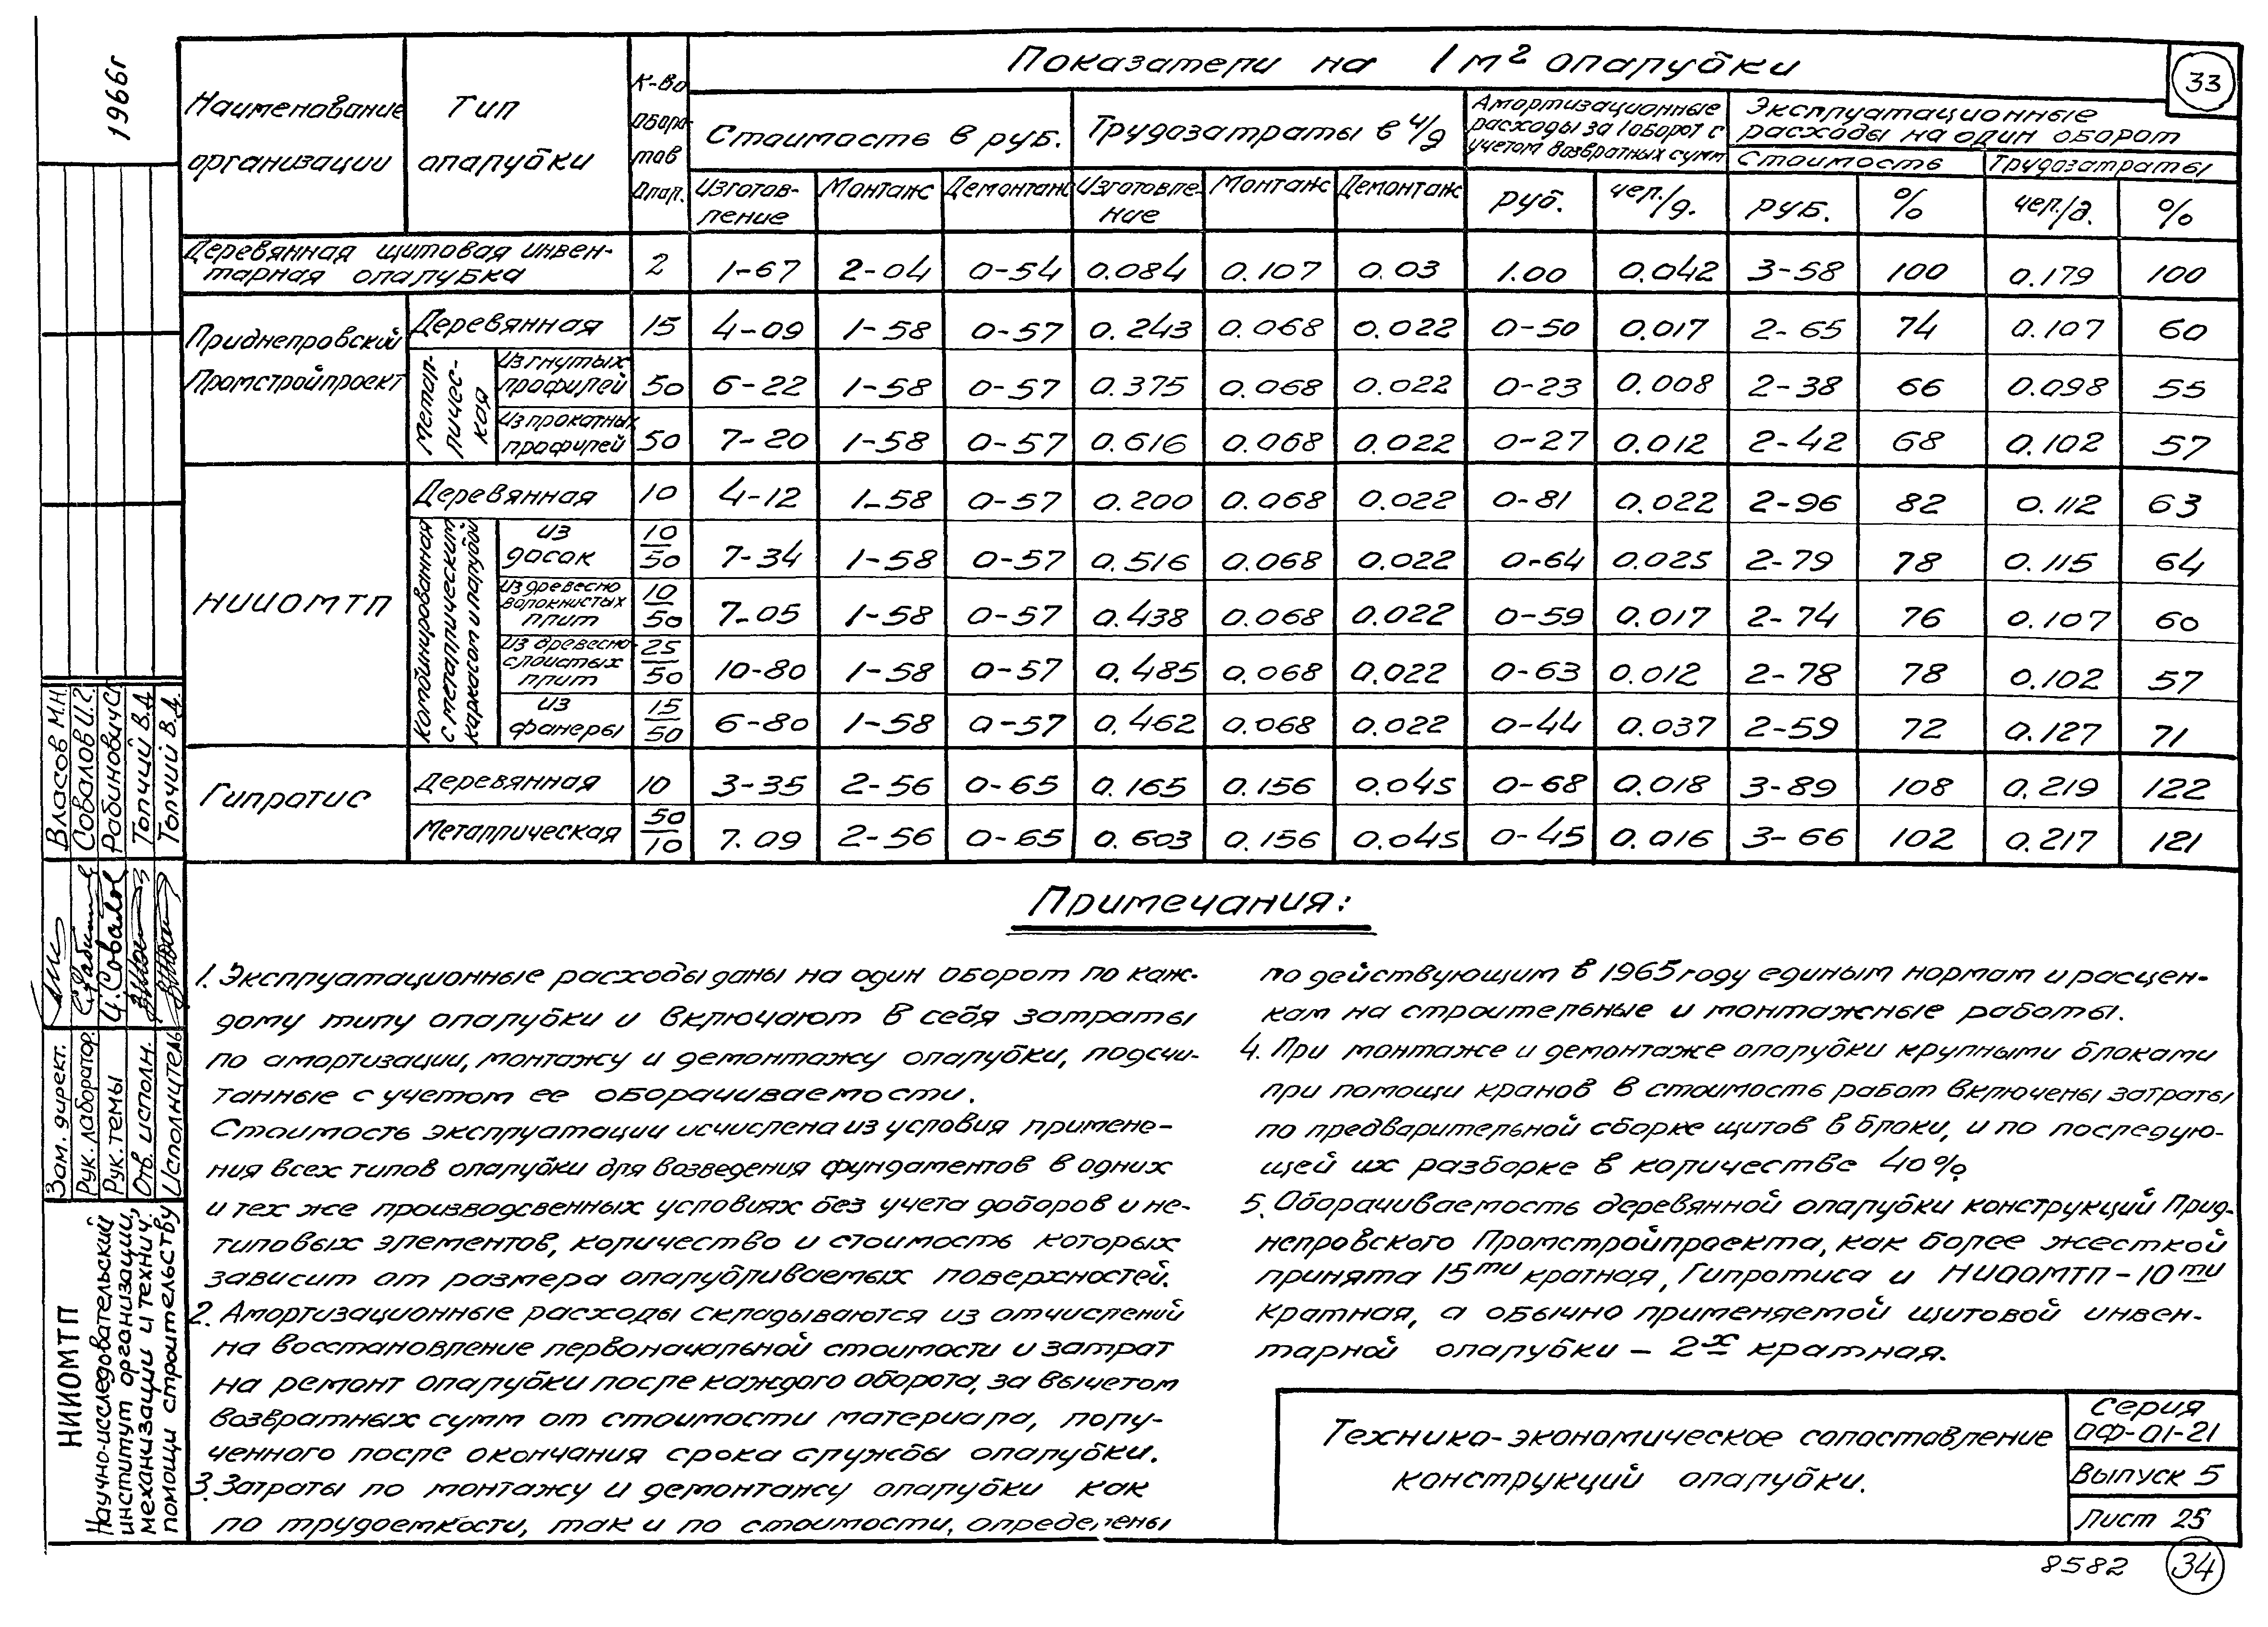 1966г
33
Показатели на 1 м² опалубки
Наименование организации
Тип опалубки
К-во оборотов опал.
Стоимость в руб.
Трудозатраты в ч/д
Амортизационные расходы за 1 оборот с учетом возвратных сумм
Эксплуатационные расходы на один оборот
Стоимость Трудозатраты
Изготовление Монтаж Демонтаж Изготовление Монтаж Демонтаж руб. чел./д. руб. % чел./д. %
Деревянная щитовая инвентарная опалубка 2 1-67 2-04 0-54 0.084 0.107 0.03 1.00 0.042 3-58 100 0.179 100
Приднепровский Промстройпроект
Деревянная 15 4-09 1-58 0-57 0.243 0.068 0.022 0-50 0.017 2-65 74 0.107 60
Металлическая
Из гнутых профилей 50 6-22 1-58 0-57 0.375 0.068 0.022 0-23 0.008 2-38 66 0.098 55
Из прокатных профилей 50 7-20 1-58 0-57 0.616 0.068 0.022 0-27 0.012 2-42 68 0.102 57
НИИОМТП
Деревянная 10 4-12 1-58 0-57 0.200 0.068 0.022 0-81 0.022 2-96 82 0.112 63
Комбинированная с металлическим каркасом и палубой
из досок 10/50 7-34 1-58 0-57 0.516 0.068 0.022 0-64 0.025 2-79 78 0.115 64
Из древесноволокнистых плит 10/50 7-05 1-58 0-57 0.438 0.068 0.022 0-59 0.017 2-74 76 0.107 60
Из древесно-слоистых плит 25/50 10-80 1-58 0-57 0.485 0.068 0.022 0-63 0.012 2-78 78 0.102 57
из фанеры 15/50 6-80 1-58 0-57 0.462 0.068 0.022 0-44 0.037 2-59 72 0.127 71
Гипротис
Деревянная 10 3-35 2-56 0-65 0.165 0.156 0.045 0-68 0.018 3-89 108 0.219 122
Металлическая 50/10 7.09 2-56 0-65 0.603 0.156 0.045 0-45 0.016 3-66 102 0.217 121
Примечания:
1. Эксплуатационные расходы даны на один оборот по каж-
дому типу опалубки и включают в себя затраты
по амортизации, монтажу и демонтажу опалубки, подсчи-
танные с учетом ее оборачиваемости.
Стоимость эксплуатации исчислена из условия примене-
ния всех типов опалубки для возведения фундаментов в одних
и тех же производсвенных условиях без учета доборов и не-
типовых элементов, количество и стоимость которых
зависит от размера опалубливаемых поверхностей.
2. Амортизационные расходы складываются из отчислений
на восстановление первоначальной стоимости и затрат
на ремонт опалубки после каждого оборота, за вычетом
возвратных сумм от стоимости материала, полу-
ченного после окончания срока службы опалубки.
3. Затраты по монтажу и демонтажу опалубки как
по трудоемкости, так и по стоимости, определены
по действующим в 1965 году единым нормам и расцен-
кам на строительные и монтажные работы.
4. При монтаже и демонтаже опалубки крупными блоками
при помощи кранов в стоимость работ включены затраты
по предварительной сборке щитов в блоки, и по последую-
щей их разборке в количестве 40%.
5. Оборачиваемость деревянной опалубки конструкций Прид-
непровского Промстройпроекта, как более жесткой
принята 15ти кратная, Гипротиса и НИИОМТП - 10ти
кратная, а обычно применяемой щитовой инвен-
тарной опалубки - 2х кратная.
Технико-экономическое сопоставление
конструкций опалубки.
Серия
ОФ-01-21
Выпуск 5
Лист 25
8582 34
Зам. директ. Власов М.Н.
Рук. лаборатор. Совалов И.Г.
Рук. темы Рабинович С.
Отв. исполн. Топчий В.Д.
Исполнитель Топчий В.Д.
НИИОМТП
Научно-исследовательский
институт организации,
механизации и технич.
помощи строительству